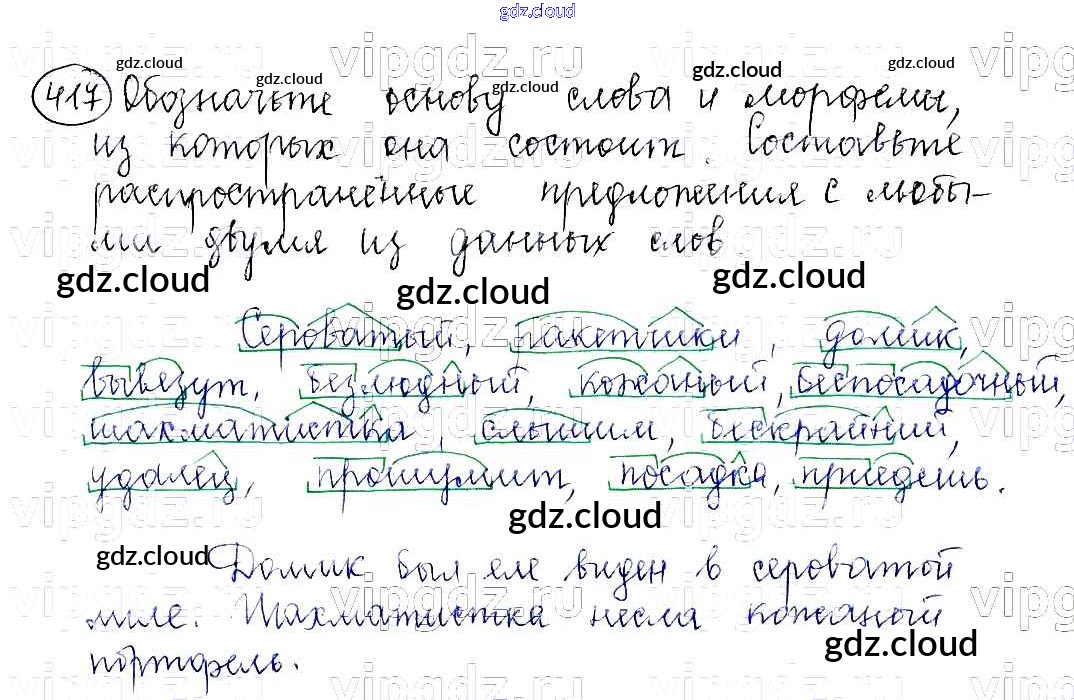 gdz.cloud
vipgdz.ru
gdz.cloud gdz.cloud gdz.cloud gdz.cloud gdz.cloud
417 Обозначьте основу слова и морфемы,
из которых она состоит. Составьте
распространённые предложения с любы-
ми двумя из данных слов
gdz.cloud gdz.cloud gdz.cloud
Сероватый, ракетчики, домик,
вывезут, безлюдный, кожаный, беспосадочный,
шахматистка, слышим, бескрайний,
удалец, прошумит, посадка, приедешь.
gdz.cloud
gdz.cloud Домик был еле виден в сероватой
мгле. Шахматистка несла кожаный
gdz.cloud
портфель.